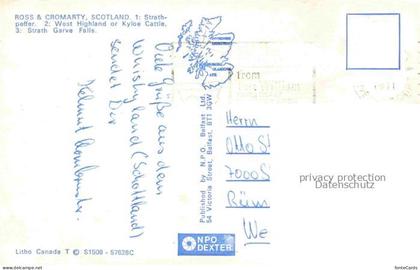 ROSS & CROMARTY, SCOTLAND. 1: Strath-
peffer. 2: West Highland or Kyloe Cattle.
3: Strath Garve Falls.
Viele Grüße aus dem
Whiskyland (Schottland)
sendet Dir
Helmut
Published by N.P.O. Belfast Ltd.
54 Victoria Street, Belfast, BT1 3GW
from
Herrn
Otto S
7000 S
We
privacy protection
Shutterstock
NPO
DEXTER
Litho Canada T © S1508 - S7628C